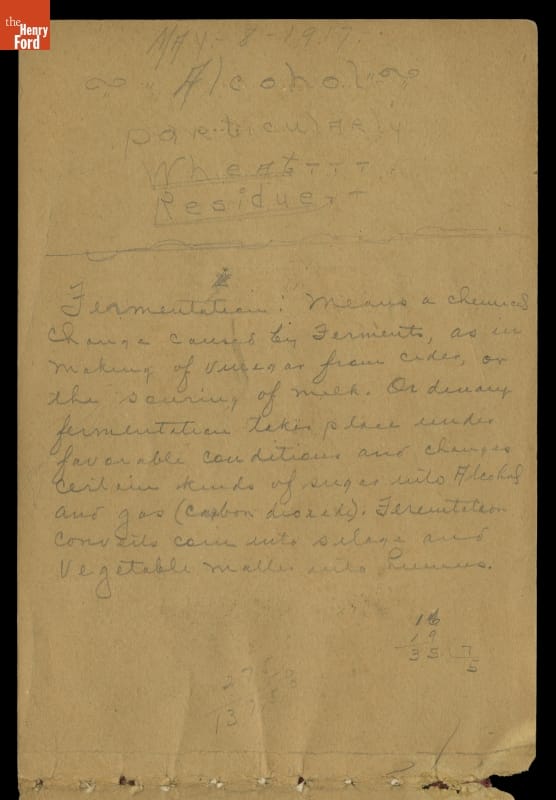 the
Henry
Ford
MAY - 8 - 1917.
Alcohol
particularly
Wheat
Residue
Fermentation: Means a chemical
change caused by Ferments, as in
making of vinegar from cider, or
the souring of milk. Ordinary
fermentation takes place under
favorable conditions and changes
certain kinds of sugar into Alcohol
and gas (carbon dioxide). Fermentation
converts corn into silage and
Vegetable matter into humus.
16
19
35 7
5